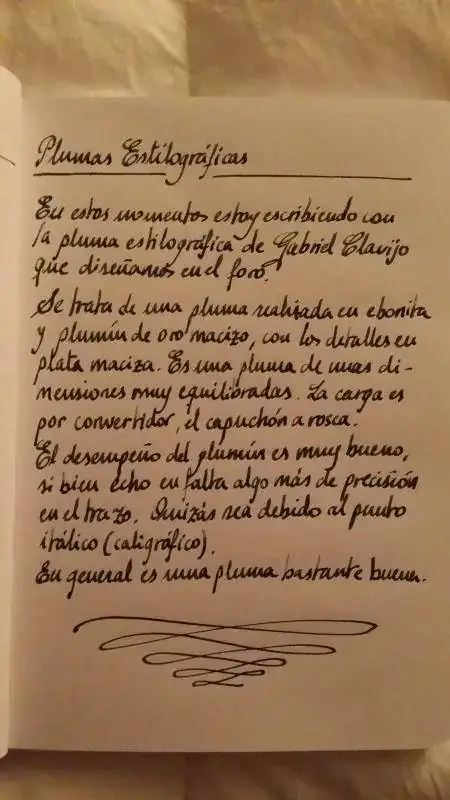 Plumas Estilográficas
En estos momentos estoy escribiendo con
la pluma estilográfica de Gabriel Clavijo
que diseñamos en el foro.
Se trata de una pluma realizada en ebonita
y plumín de oro macizo, con los detalles en
plata maciza. Es una pluma de unas di-
mensiones muy equilibradas. La carga es
por convertidor, el capuchón a rosca.
El desempeño del plumín es muy bueno,
si bien echo en falta algo más de precisión
en el trazo. Quizás sea debido al punto
itálico (caligráfico).
En general es una pluma bastante buena.